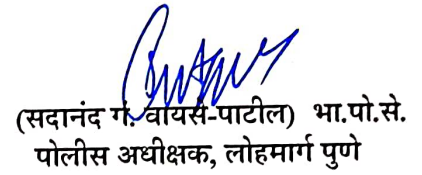 (सदानंद गं. वायसे-पाटील) भा.पो.से.
पोलीस अधीक्षक, लोहमार्ग पुणे